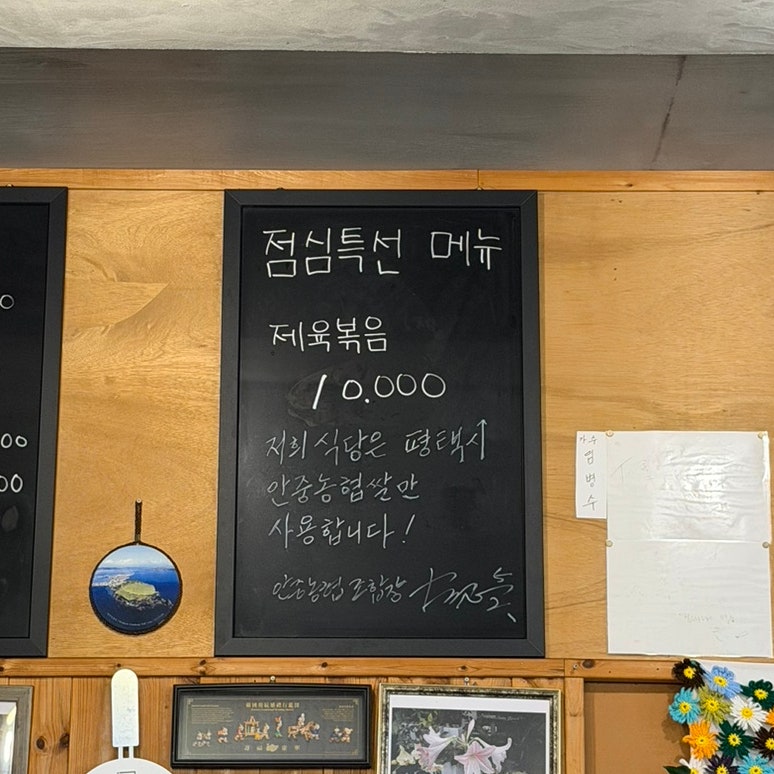 점심특선 메뉴
제육볶음
10.000
저희 식당은 평택시
안중농협쌀만
사용합니다!
안중농협 조합장
0
00
00
가수
염
병
수